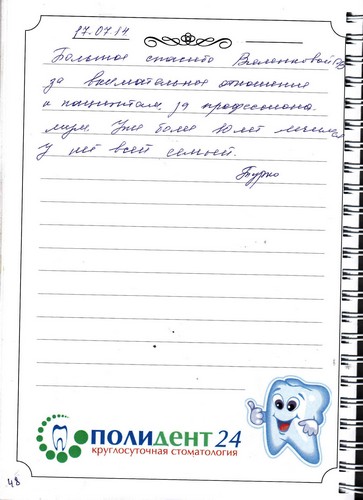 17.07.14
Большое спасибо Виленковой
за внимательное отношение
к пациентам, за професиона-
лизм. Уже более 10 лет лечимся
у неё всей семьей.
Бурко
ПОЛИДЕНТ 24
круглосуточная стоматология
48